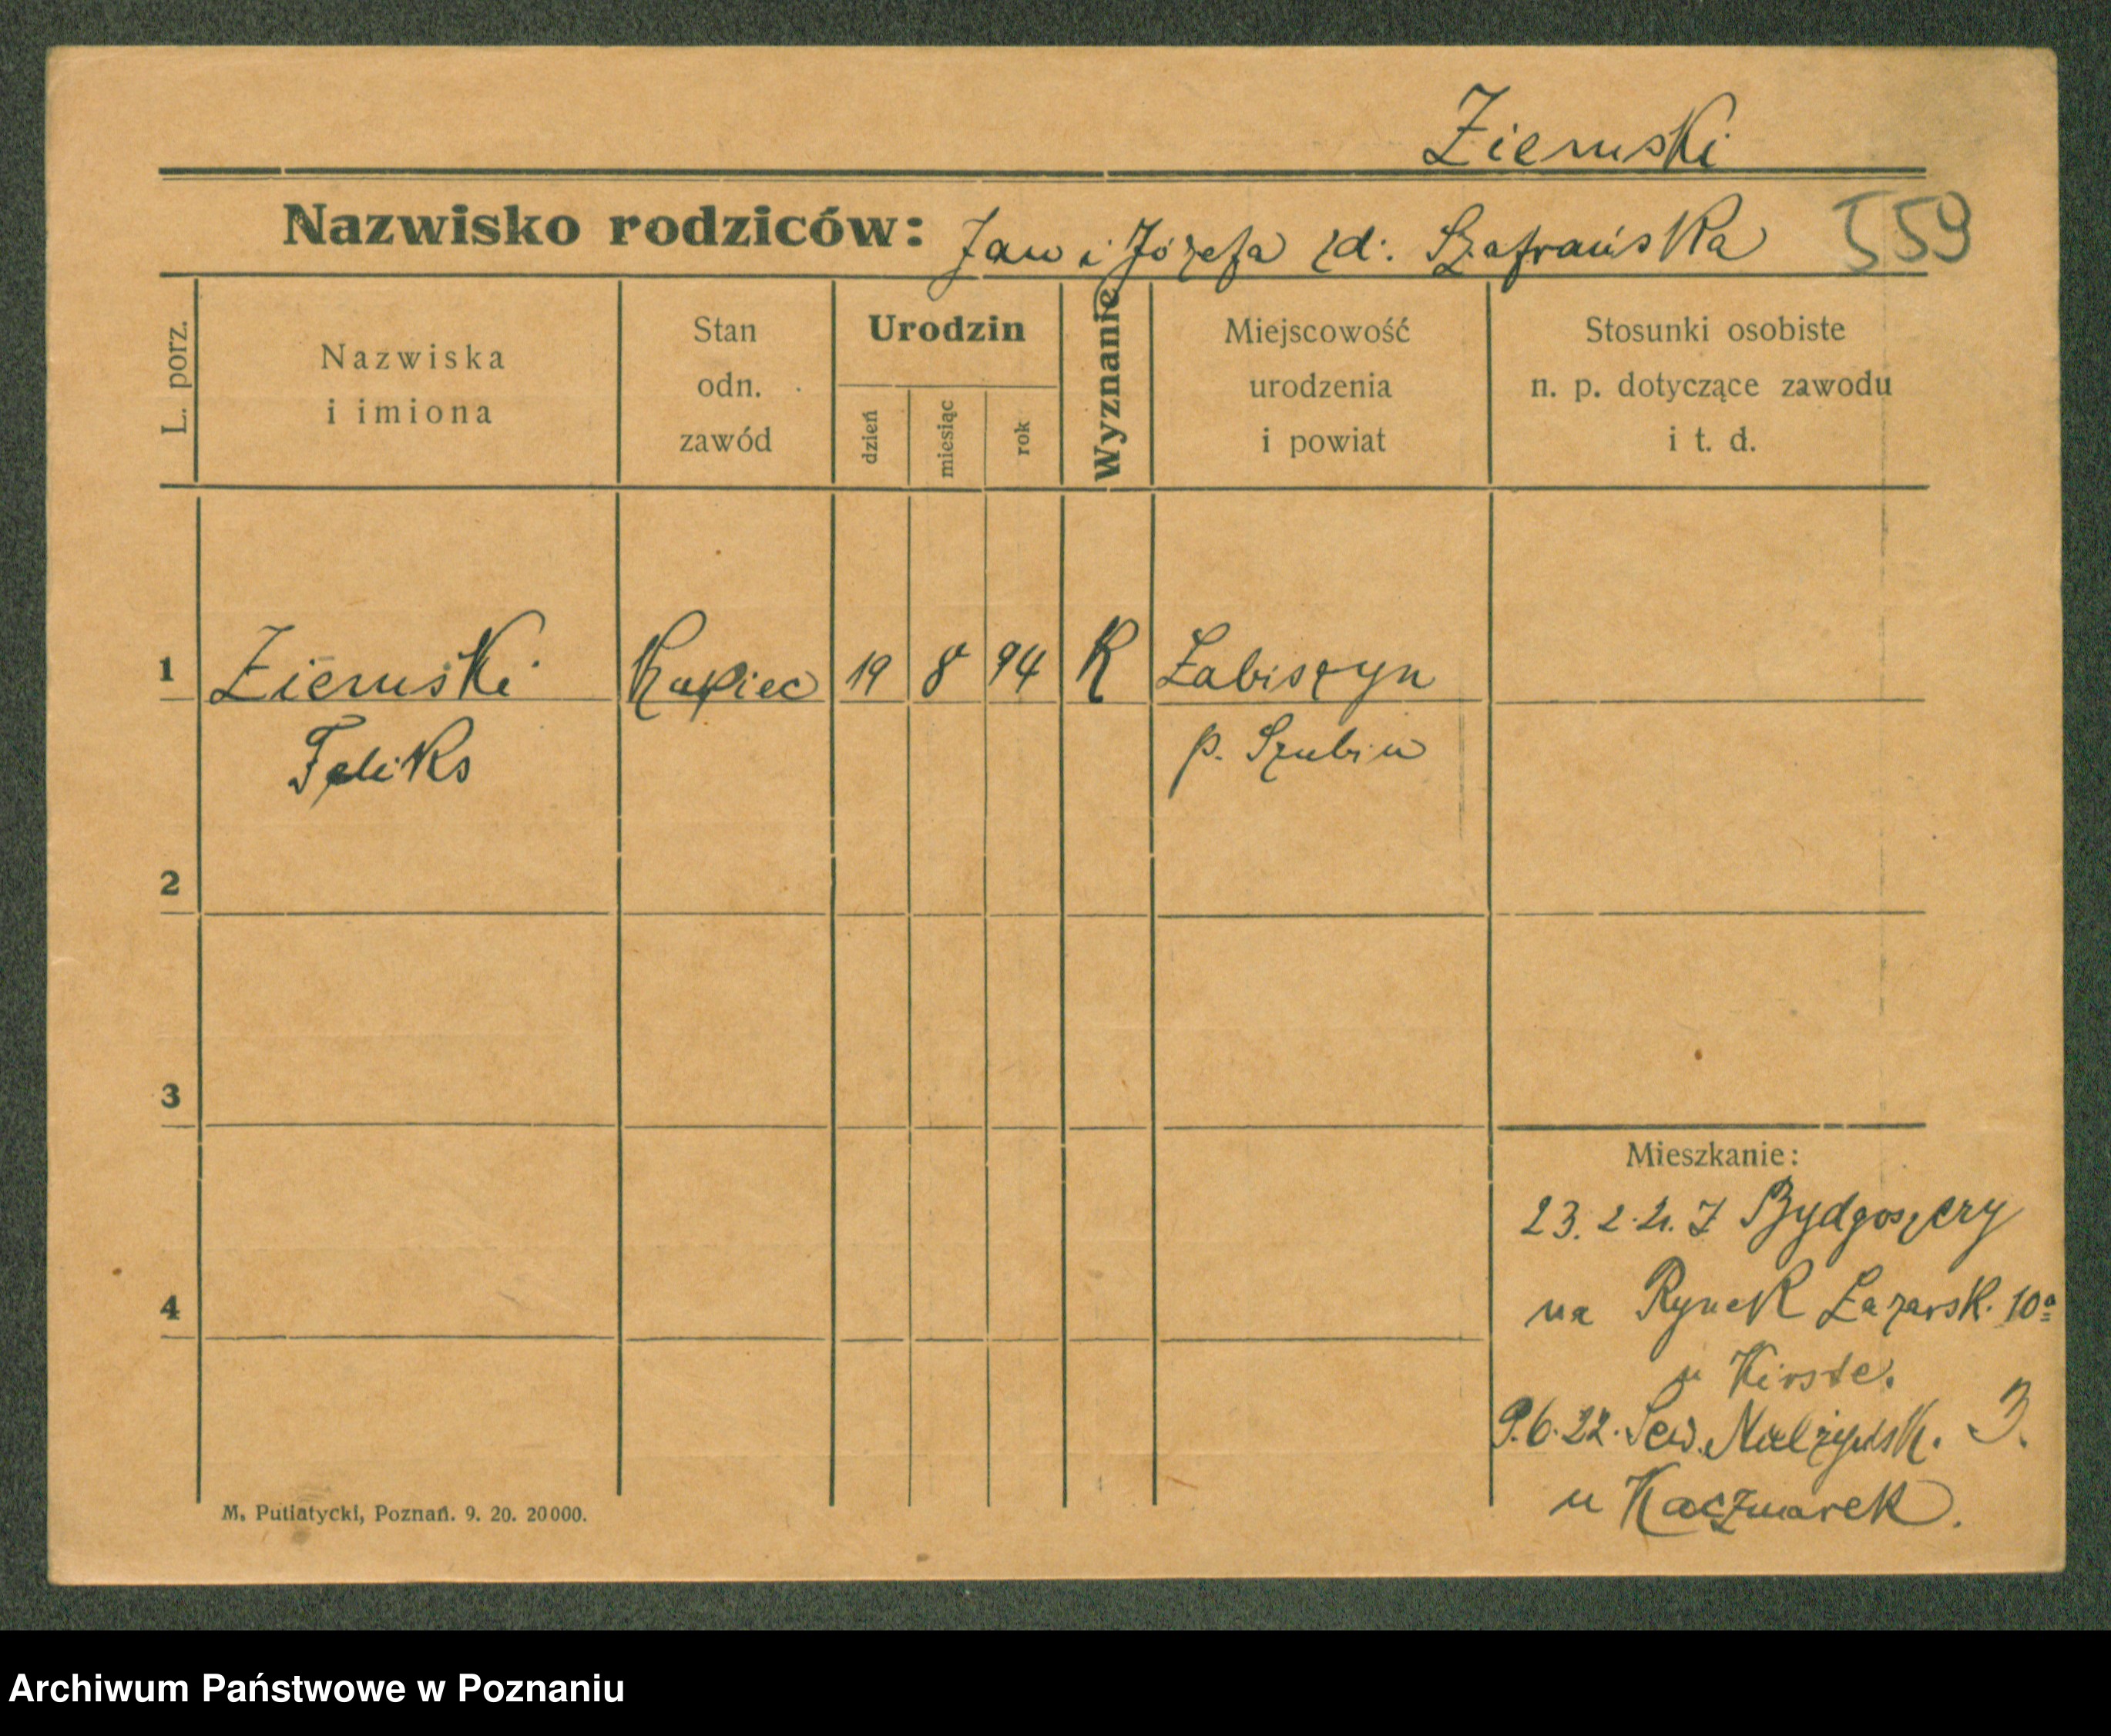 Ziemski
Nazwisko rodziców: Jan i Józefa zd. Szafrańska 559
L. porz.
Nazwiska
i imiona
Stan
odn.
zawód
Urodzin
dzień
miesiąc
rok
Wyznanie
Miejscowość
urodzenia
i powiat
Stosunki osobiste
n. p. dotyczące zawodu
i t. d.
1 Ziemski Kupiec 19 8 94 K Łabiszyn
Feliks p. Szubin
2
3
Mieszkanie:
23. 2. 21. Z Bydgoszczy
4
na Rynek Łazarsk. 10a
u Kirste.
9.6.22. Sew. Mielżyńsk. 3.
u Kaczmarek.
M. Putiatycki, Poznań. 9. 20. 20000.
Archiwum Państwowe w Poznaniu